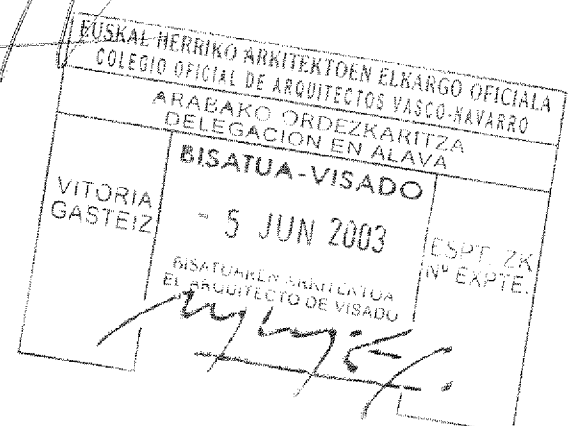 EUSKAL HERRIKO ARKITEKTOEN ELKARGO OFICIALA
COLEGIO OFICIAL DE ARQUITECTOS VASCO-NAVARRO
ARABAKO ORDEZKARITZA
DELEGACION EN ALAVA
BISATUA-VISADO
VITORIA
GASTEIZ
- 5 JUN 2003
ESPT. ZK
Nº EXPTE.
BISATUAREN ARKITEKTOA
EL ARQUITECTO DE VISADO